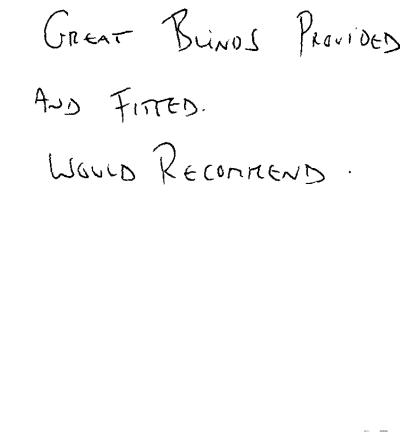 Great Blinds Provided
And Fitted.
Would Recommend.